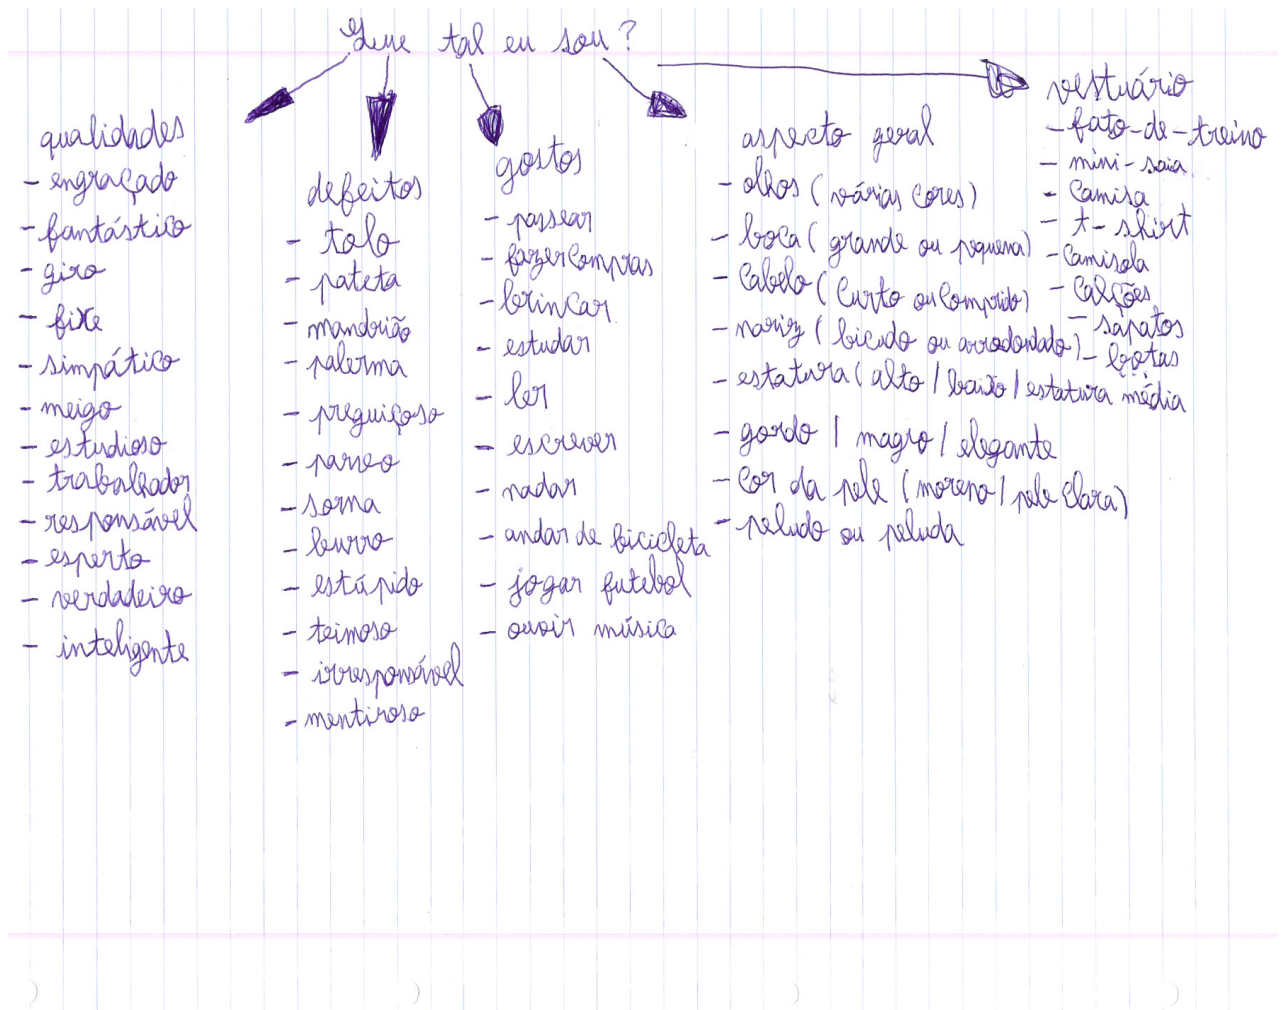 Que tal eu sou?
qualidades
- engraçado
- fantástico
- giro
- fixe
- simpático
- meigo
- estudioso
- trabalhador
- responsável
- esperto
- verdadeiro
- inteligente
defeitos
- tolo
- pateta
- mandrião
- palerma
- preguiçoso
- parvo
- sorna
- burro
- estúpido
- teimoso
- irresponsável
- mentiroso
gostos
- passear
- fazer compras
- brincar
- estudar
- ler
- escrever
- nadar
- andar de bicicleta
- jogar futebol
- ouvir música
aspecto geral
- olhos (várias cores)
- boca (grande ou pequena)
- cabelo (curto ou comprido)
- nariz (bicudo ou arrodondado)
- estatura (alto / baixo / estatura média
- gordo / magro / elegante
- cor da pele (moreno / pele clara)
- peludo ou peluda
vestuário
- fato-de-treino
- mini-saia
- camisa
- t-shirt
- camisola
- calções
- sapatos
- botas
...